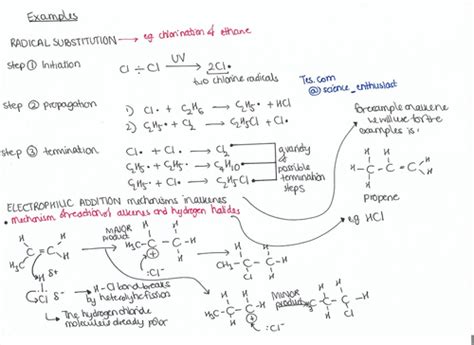 Examples
RADICAL SUBSTITUTION → eg chlorination of ethane
Step ① Initiation
Cl ÷ Cl UV → 2Cl•
two chlorine radicals
Tes.com
@science_enthusiast
Step ② propagation
1) Cl• + C₂H₆ → C₂H₅• + HCl
2) C₂H₅• + Cl₂ → C₂H₅Cl + Cl•
For example alkene
we will use for the
examples is:
Step ③ termination
Cl• + Cl• → Cl₂
C₂H₅• + C₂H₅• → C₄H₁₀
C₂H₅• + Cl• → C₂H₅Cl
a variety
of
possible
termination
steps
H H H
H-C-C=C
H H
Propene
ELECTROPHILIC ADDITION mechanisms in alkenes
• mechanism of reaction of alkenes and hydrogen halides
eg HCl
H H
C=C
H₃C H
MAJOR
product
H H
H₃C-C-C-H
⊕ H
:Cl⁻
H H
H₃C-C-C-H
Cl H
H δ+
Cl δ-
H-Cl bond breaks
by heterolytic fission
↳ The hydrogen chloride
molecule is already polar
H H
H₃C-C-C-H
H ⊕
:Cl⁻
MINOR
product
H H
H₃C-C-C-H
H Cl